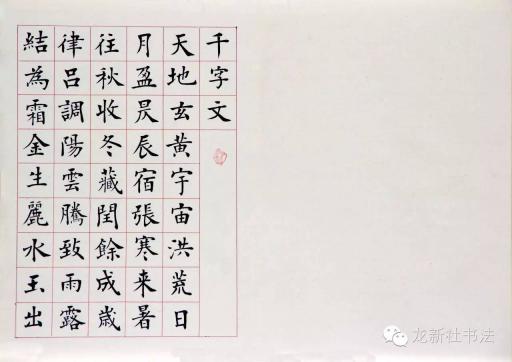 千字文
天地玄黃宇宙洪荒日
月盈昃辰宿張寒来暑
往秋收冬藏閏餘成歲
律呂調陽雲騰致雨露
結為霜金生麗水玉出
龙新社书法